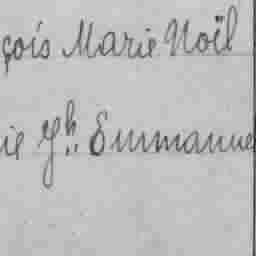 çois Marie Noël
ie Jh. Emmanue